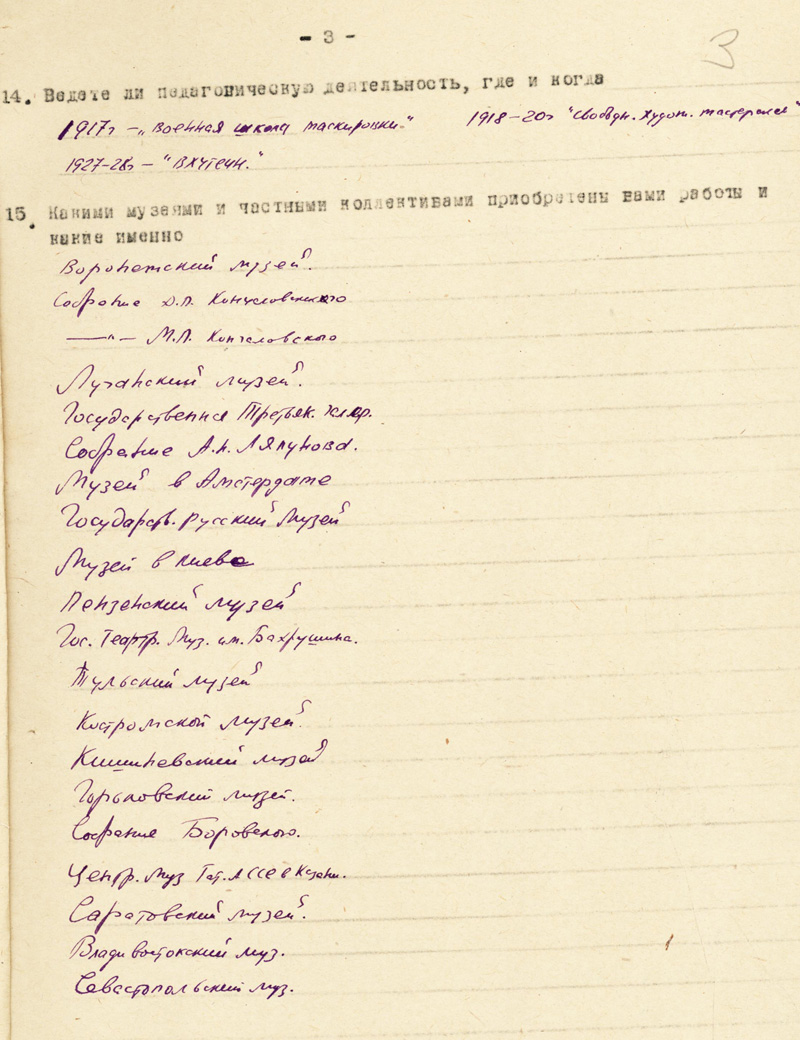 - 3 -
3
14. Ведете ли педагогическую деятельность, где и когда
1917г – „Военная школа маскировки." 1918–20г "Свободн. Худож. мастерские"
1927-28г – "Вхутеин."
15. Какими музеями и частными коллективами приобретены вами работы и
какие именно
Воронежский музей.
Собрание Д.П. Кончаловского
—"— М.П. Кончаловского
Луганский музей.
Государственная Третьяк. галер.
Собрание А.Н. Ляпунова.
Музей в Амстердаме
Государств. Русский Музей
Музей в Киеве
Пензенский музей
Гос. Театр. Муз. им. Бахрушина.
Тульский музей
Костромской музей.
Кишиневский музей
Горьковский музей.
Собрание Боровского.
Центр. Муз Тат. АССР в Казани.
Саратовский музей.
Владивостокский муз.
Севастопольский муз.